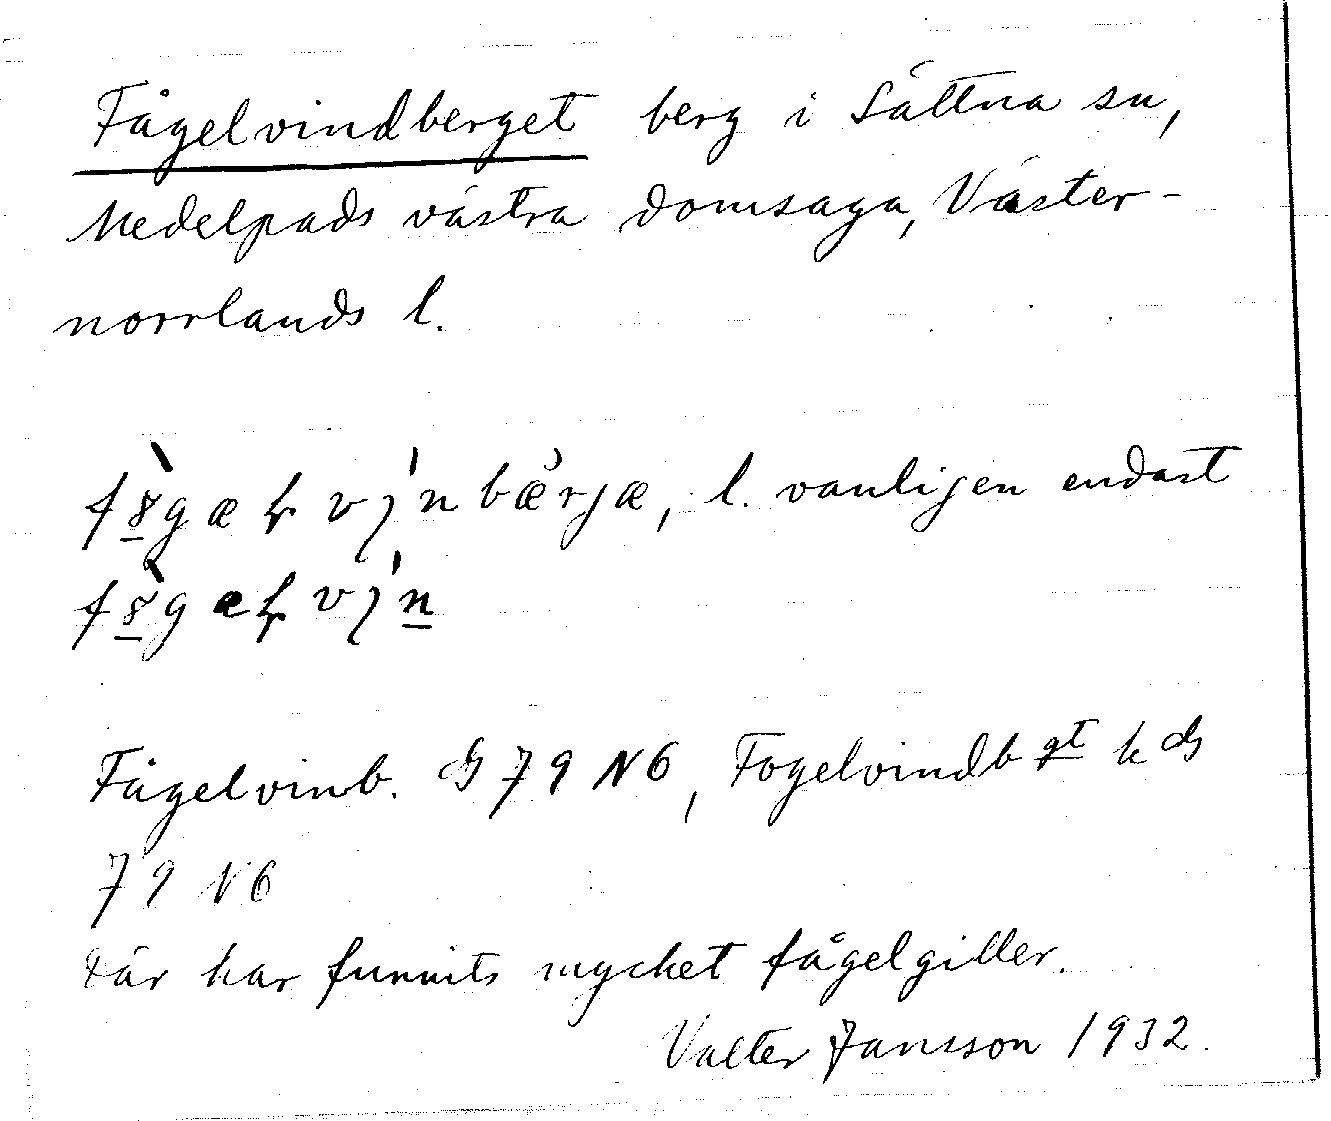 Fågelvindberget berg i Sättna sn,
Medelpads västra domsaga, Väster-
norrlands l.
vinbærjæ, l. vanligen endast
Fågelvinb. G 79 N6, Fogelvindbgt k G
79 N6
Där har funnits mycket fågelgiller.
Valter Jansson 1932.